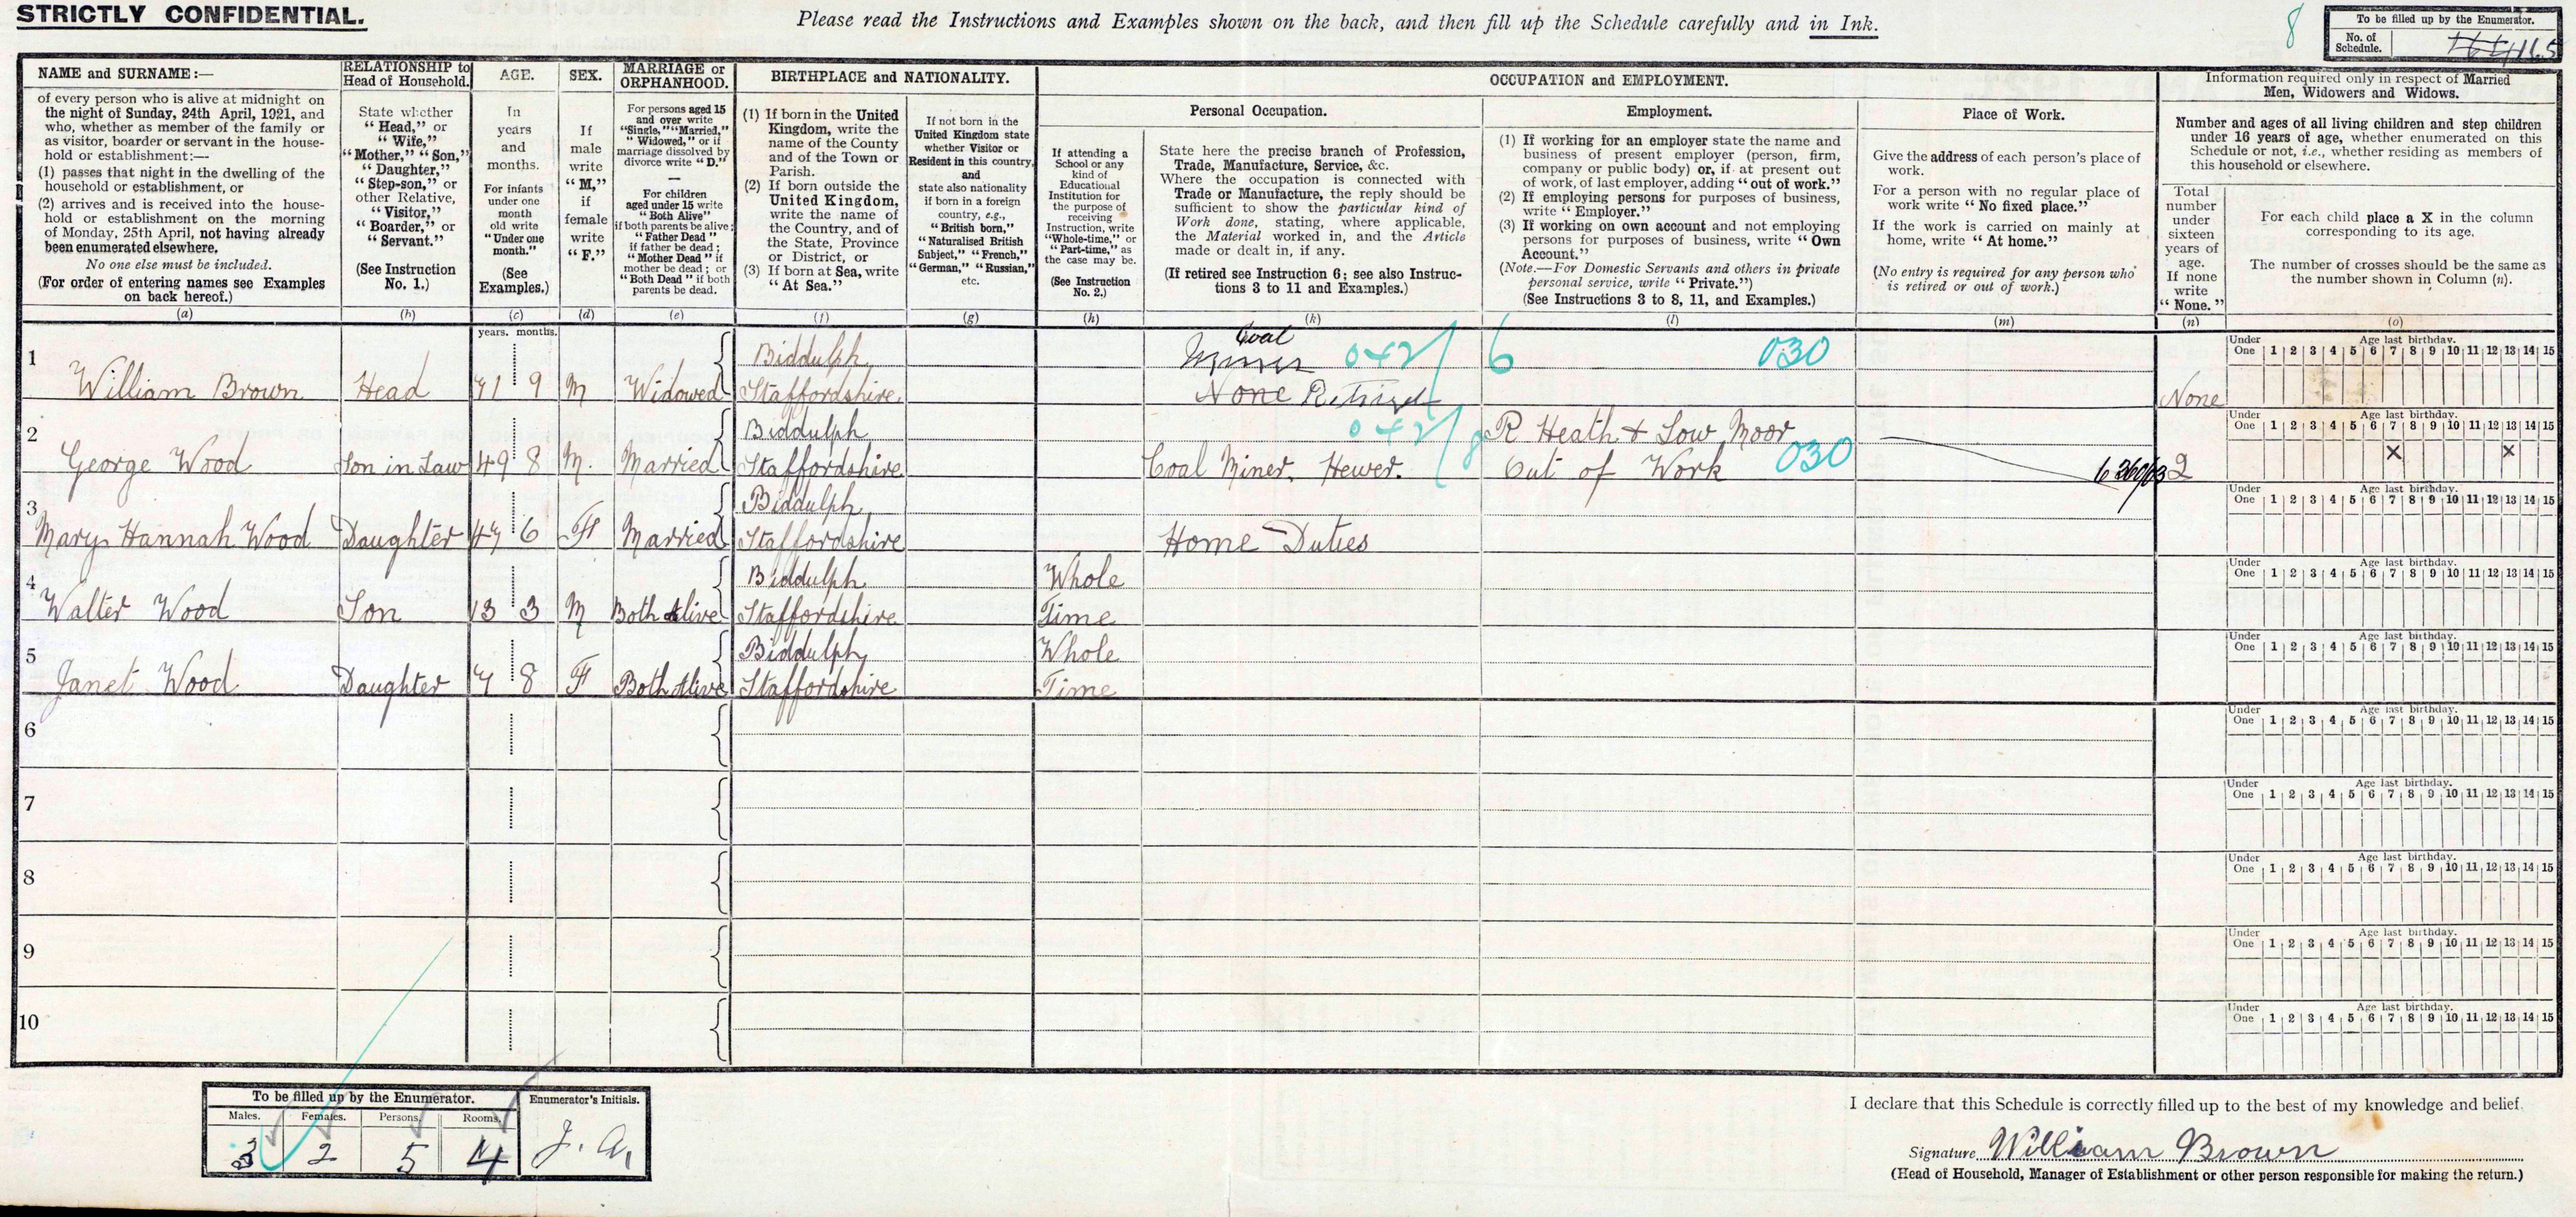 STRICTLY CONFIDENTIAL.
Please read the Instructions and Examples shown on the back, and then fill up the Schedule carefully and in Ink.
8
To be filled up by the Enumerator.
No. of Schedule.
165
NAME and SURNAME:—
of every person who is alive at midnight on
the night of Sunday, 24th April, 1921, and
who, whether as member of the family or
as visitor, boarder or servant in the house-
hold or establishment:—
(1) passes that night in the dwelling of the
household or establishment, or
(2) arrives and is received into the house-
hold or establishment on the morning
of Monday, 25th April, not having already
been enumerated elsewhere.
No one else must be included.
(For order of entering names see Examples
on back hereof.)
(a)
RELATIONSHIP to
Head of Household.
State whether
"Head," or
"Wife,"
"Mother," "Son,"
"Daughter,"
"Step-son," or
other Relative,
"Visitor,"
"Boarder," or
"Servant."
(See Instruction
No. 1.)
(b)
AGE.
In
years
and
months.
For infants
under one
month
old write
"Under one
month."
(See
Examples.)
(c)
SEX.
If
male
write
"M,"
if
female
write
"F."
(d)
MARRIAGE or
ORPHANHOOD.
For persons aged 15
and over write
"Single," "Married,"
"Widowed," or if
marriage dissolved by
divorce write "D."
—
For children
aged under 15 write
"Both Alive"
if both parents be alive;
"Father Dead"
if father be dead;
"Mother Dead" if
mother be dead; or
"Both Dead" if both
parents be dead.
(e)
BIRTHPLACE and NATIONALITY.
(1) If born in the United
Kingdom, write the
name of the County
and of the Town or
Parish.
(2) If born outside the
United Kingdom,
write the name of
the Country, and of
the State, Province
or District, or
(3) If born at Sea, write
"At Sea."
(f)
If not born in the
United Kingdom state
whether Visitor or
Resident in this country,
and
state also nationality
if born in a foreign
country, e.g.,
"British born,"
"Naturalised British
Subject," "French,"
"German," "Russian,"
etc.
(g)
OCCUPATION and EMPLOYMENT.
If attending a
School or any
kind of
Educational
Institution for
the purpose of
receiving
Instruction, write
"Whole-time," or
"Part-time," as
the case may be.
(See Instruction
No. 2.)
(h)
Personal Occupation.
State here the precise branch of Profession,
Trade, Manufacture, Service, &c.
Where the occupation is connected with
Trade or Manufacture, the reply should be
sufficient to show the particular kind of
Work done, stating, where applicable,
the Material worked in, and the Article
made or dealt in, if any.
(If retired see Instruction 6; see also Instruc-
tions 3 to 11 and Examples.)
(k)
Employment.
(1) If working for an employer state the name and
business of present employer (person, firm,
company or public body) or, if at present out
of work, of last employer, adding "out of work."
(2) If employing persons for purposes of business,
write "Employer."
(3) If working on own account and not employing
persons for purposes of business, write "Own
Account."
(Note.—For Domestic Servants and others in private
personal service, write "Private.")
(See Instructions 3 to 8, 11, and Examples.)
(l)
Place of Work.
Give the address of each person's place of
work.
For a person with no regular place of
work write "No fixed place."
If the work is carried on mainly at
home, write "At home."
(No entry is required for any person who
is retired or out of work.)
(m)
Information required only in respect of Married
Men, Widowers and Widows.
Number and ages of all living children and step children
under 16 years of age, whether enumerated on this
Schedule or not, i.e., whether residing as members of
this household or elsewhere.
Total
number
under
sixteen
years of
age.
If none
write
"None."
(n)
For each child place a X in the column
corresponding to its age.
The number of crosses should be the same as
the number shown in Column (n).
(o)
years. months.
Under Age last birthday.
One 1 2 3 4 5 6 7 8 9 10 11 12 13 14 15
1 Biddulph Coal
Miner 042 6 030
William Brown Head 71 9 M Widowed Staffordshire None Retired None
Under Age last birthday.
One 1 2 3 4 5 6 7 8 9 10 11 12 13 14 15
2 Biddulph 042 8 R Heath & Low Moor
George Wood Son in Law 49 8 M. Married Staffordshire Coal Miner. Hewer. Out of Work 030 2 X X
Under Age last birthday.
One 1 2 3 4 5 6 7 8 9 10 11 12 13 14 15
3 Biddulph
Mary Hannah Wood Daughter 47 6 F Married Staffordshire Home Duties
Under Age last birthday.
One 1 2 3 4 5 6 7 8 9 10 11 12 13 14 15
4 Biddulph Whole
Walter Wood Son 13 3 M Both Alive Staffordshire Time
Under Age last birthday.
One 1 2 3 4 5 6 7 8 9 10 11 12 13 14 15
5 Biddulph Whole
Janet Wood Daughter 7 8 F Both Alive Staffordshire Time
Under Age last birthday.
One 1 2 3 4 5 6 7 8 9 10 11 12 13 14 15
6
Under Age last birthday.
One 1 2 3 4 5 6 7 8 9 10 11 12 13 14 15
7
Under Age last birthday.
One 1 2 3 4 5 6 7 8 9 10 11 12 13 14 15
8
Under Age last birthday.
One 1 2 3 4 5 6 7 8 9 10 11 12 13 14 15
9
Under Age last birthday.
One 1 2 3 4 5 6 7 8 9 10 11 12 13 14 15
10
To be filled up by the Enumerator.
Males. Females. Persons. Rooms.
3 2 5 4
Enumerator's Initials.
J. A.
I declare that this Schedule is correctly filled up to the best of my knowledge and belief.
Signature William Brown
(Head of Household, Manager of Establishment or other person responsible for making the return.)